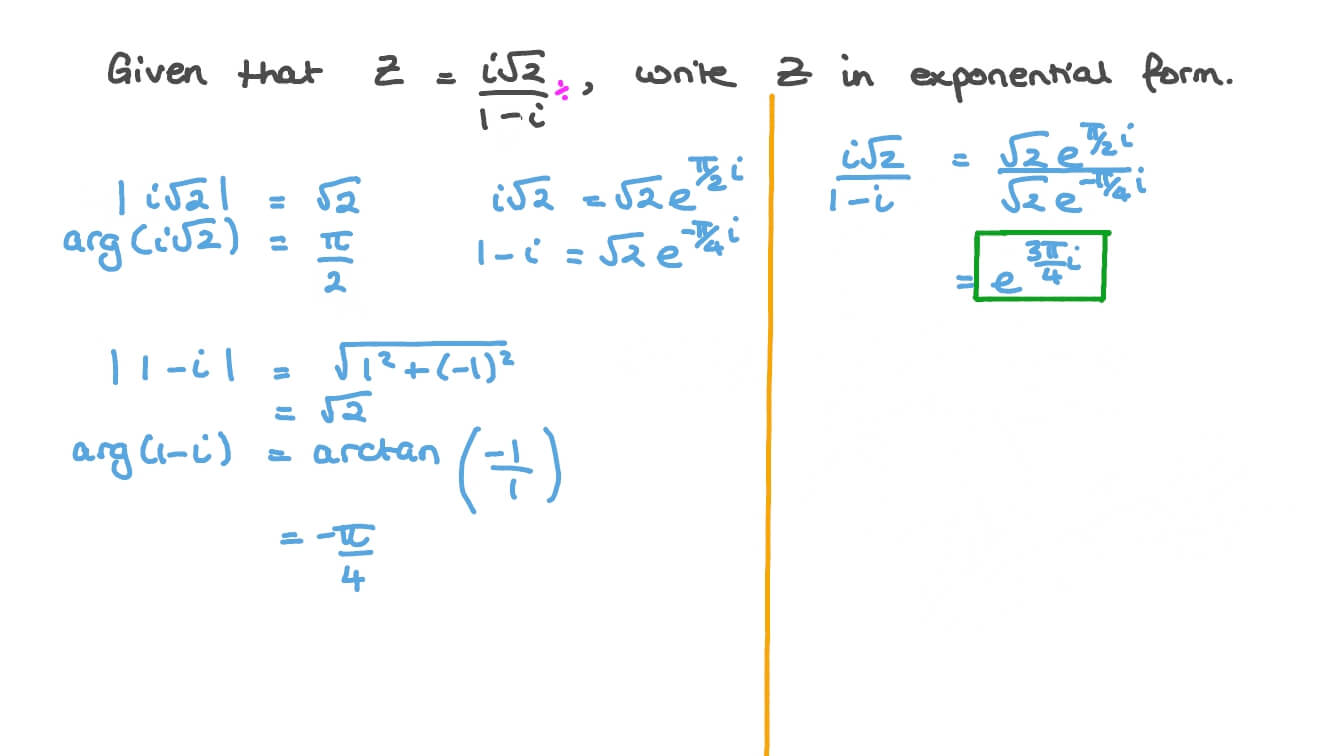 Given that Z = i√2 / 1-i ÷, write Z in exponential form.
|i√2| = √2
arg(i√2) = π/2
i√2 = √2 e^(π/2 i)
1-i = √2 e^(-π/4 i)
|1-i| = √(1² + (-1)²)
= √2
arg(1-i) = arctan (-1/1)
= -π/4
i√2 / 1-i = √2 e^(π/2 i) / √2 e^(-π/4 i)
= e^(3π/4 i)